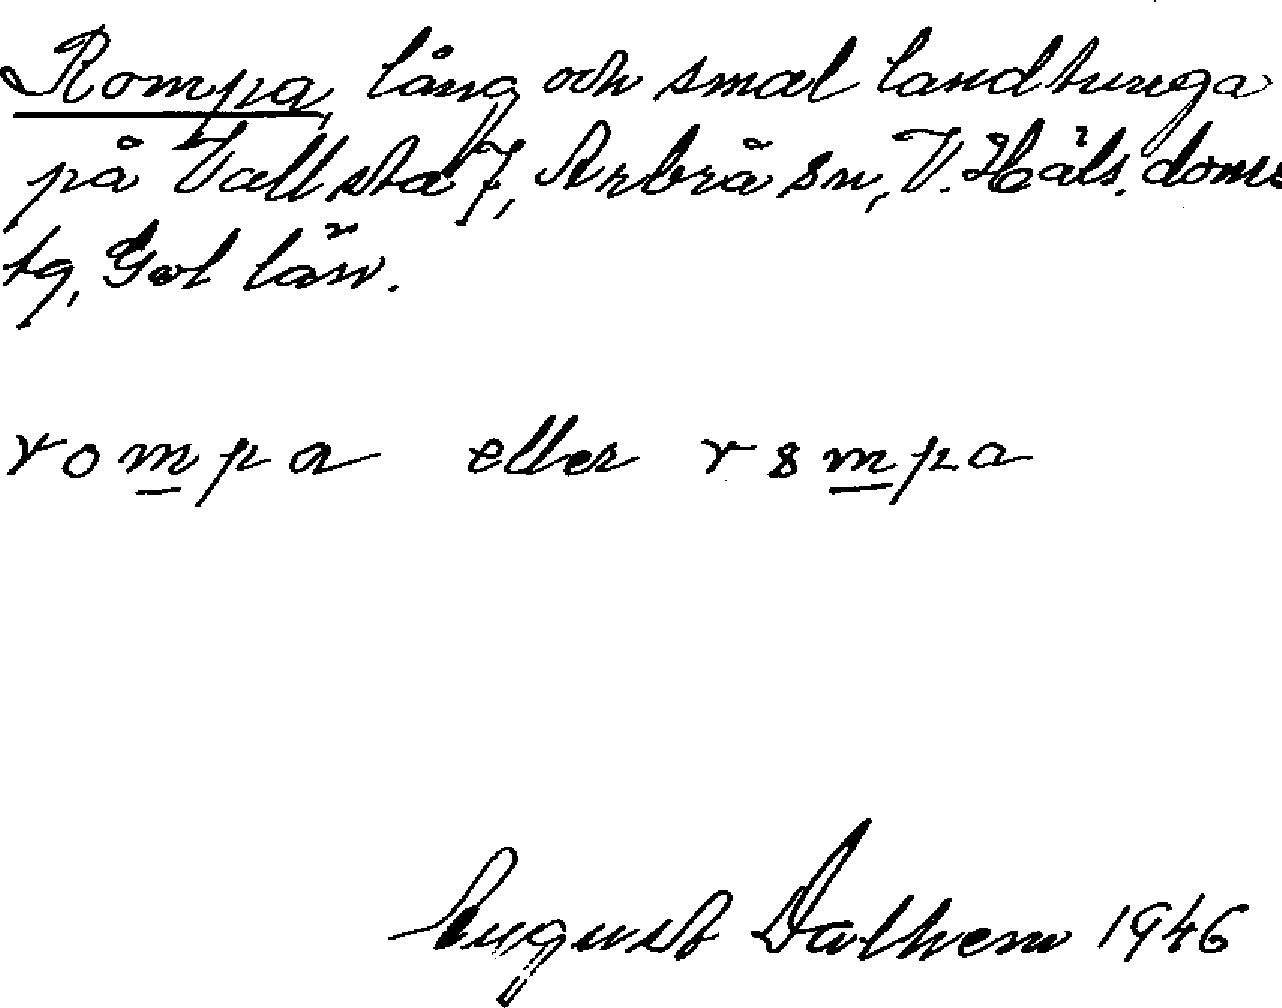 Rompa, lång och smal landtunga
på Vallsta 7, Arbrå sn, V. Häls. doms
tg, Gvl län.
rompa eller r8mpa
August Dalhem 1946